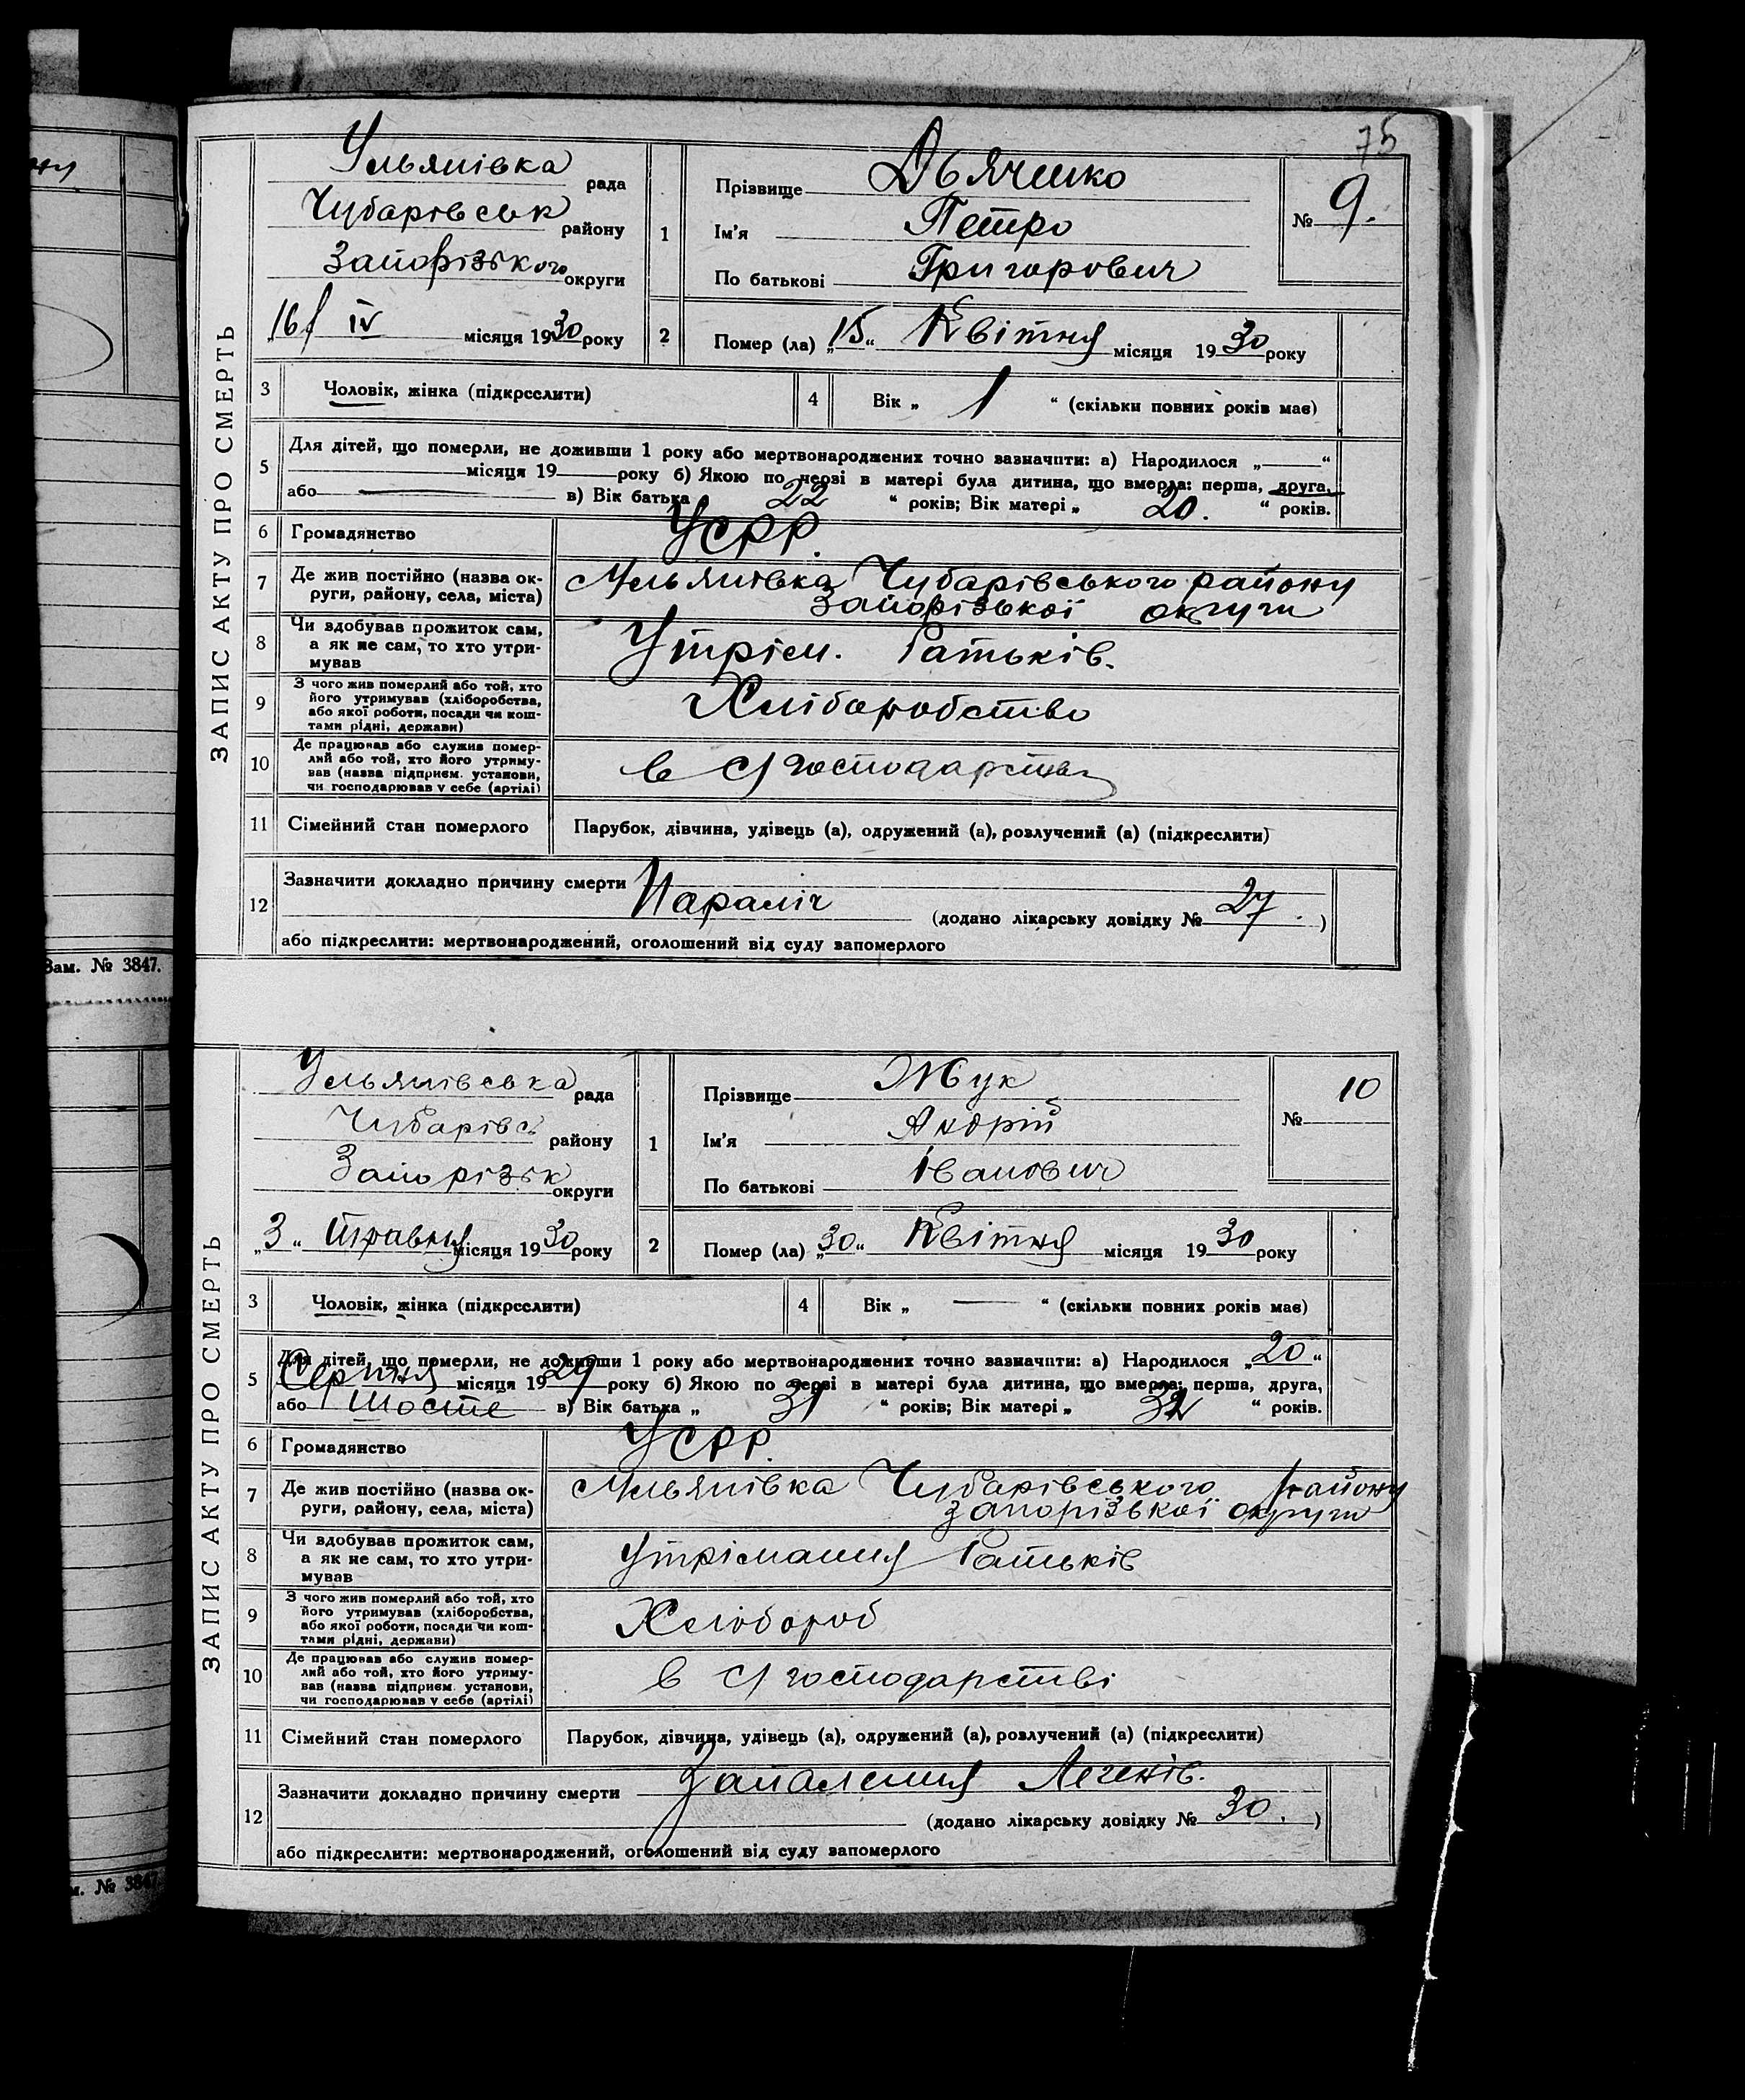 75
ЗАПИС АКТУ ПРО СМЕРТЬ
Ульянівка рада
Чубарівськ району
Запорізького округи
„16" IV місяця 1930 року
1
Прізвище Дьяченко
Ім'я Петро
По батькові Григорович
№ 9.
2
Помер (ла) „15" Квітня місяця 1930 року
3 Чоловік, жінка (підкреслити)
4 Вік „ 1 " (скільки повних років має)
5 Для дітей, що померли, не доживши 1 року або мертвонароджених точно зазначити: а) Народилося „ — "
місяця 19 року б) Якою по черзі в матері була дитина, що вмерла: перша, друга,
або — в) Вік батька „ 22 " років; Вік матері „ 20. " років.
6 Громадянство УСРР.
7 Де жив постійно (назва ок-
руги, району, села, міста)
Ульянівка Чубарівського району
Запорізької округи
8 Чи здобував прожиток сам,
а як не сам, то хто утри-
мував
Утрім. Батьків.
9 З чого жив померлий або той, хто
його утримував (хліборобства,
або якої роботи, посади чи кош-
тами рідні, держави)
Хліборобство
10 Де працював або служив помер-
лий або той, хто його утриму-
вав (назва підприєм. установи,
чи господарював у себе (артілі)
в С/господарстві
11 Сімейний стан померлого Парубок, дівчина, удівець (а), одружений (а), розлучений (а) (підкреслити)
12 Зазначити докладно причину смерти Параліч
(додано лікарську довідку № 27. )
або підкреслити: мертвонароджений, оголошений від суду запомерлого
Зам. № 3847.
ЗАПИС АКТУ ПРО СМЕРТЬ
Ульянівська рада
Чубарівсь району
Запорізьк округи
„3" травня місяця 1930 року
1
Прізвище Жук
Ім'я Андрій
По батькові Іванович
№ 10
2
Помер (ла) „30" Квітня місяця 1930 року
3 Чоловік, жінка (підкреслити)
4 Вік „ — " (скільки повних років має)
5 Для дітей, що померли, не доживши 1 року або мертвонароджених точно зазначити: а) Народилося „20"
Серпня місяця 1929 року б) Якою по черзі в матері була дитина, що вмерла: перша, друга,
або Шосте в) Вік батька „ 31 " років; Вік матері „ 32 " років.
6 Громадянство УСРР.
7 Де жив постійно (назва ок-
руги, району, села, міста)
Ульянівка Чубарівського району
Запорізької округи
8 Чи здобував прожиток сам,
а як не сам, то хто утри-
мував
Утрімання Батьків
9 З чого жив померлий або той, хто
його утримував (хліборобства,
або якої роботи, посади чи кош-
тами рідні, держави)
Хлібороб
10 Де працював або служив помер-
лий або той, хто його утриму-
вав (назва підприєм. установи,
чи господарював у себе (артілі)
в С/господарстві
11 Сімейний стан померлого Парубок, дівчина, удівець (а), одружений (а), розлучений (а) (підкреслити)
12 Зазначити докладно причину смерти Запалення Легенів.
(додано лікарську довідку № 30. )
або підкреслити: мертвонароджений, оголошений від суду запомерлого
м. № 3847